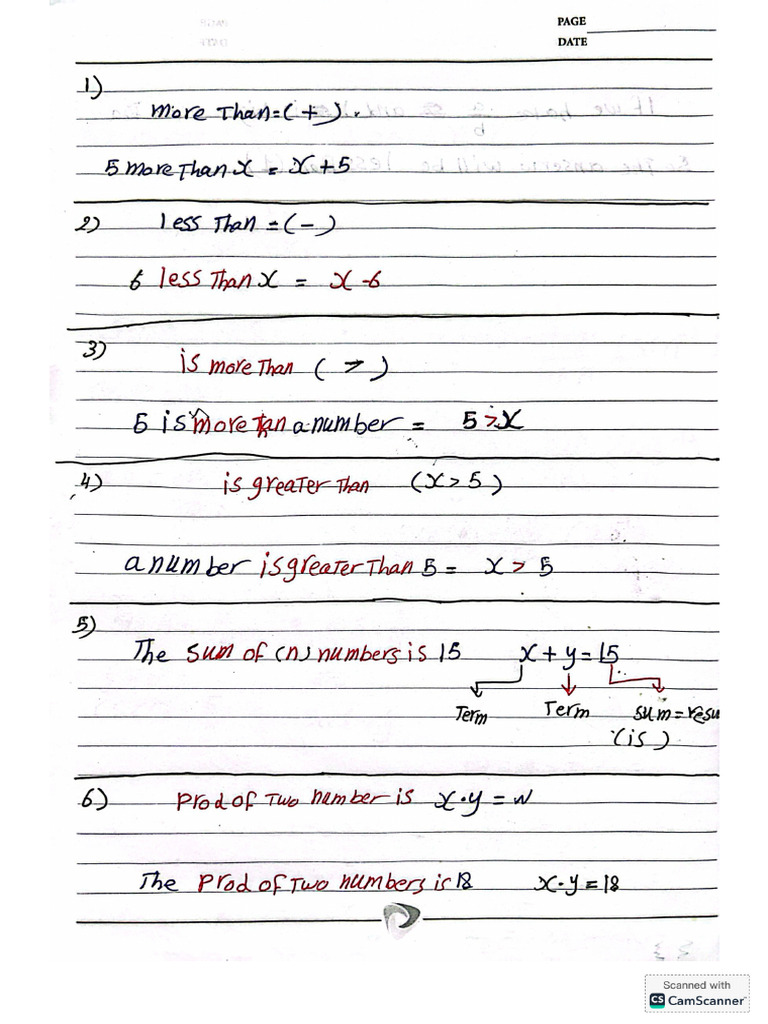 PAGE
DATE
1)
more Than = (+).
5 more Than x = x + 5
2) less Than = (-)
6 less Than x = x - 6
3)
is more Than ( > )
5 is more Than a number = 5 > x
4) is greater Than (x > 5)
a number is greater Than 5 = x > 5
5)
The sum of (n) numbers is 15 x + y = 15
Term Term sum = resu
(is)
6) Prod of Two number is x · y = N
The Prod of Two numbers is 18 x · y = 18
Scanned with
CS CamScanner